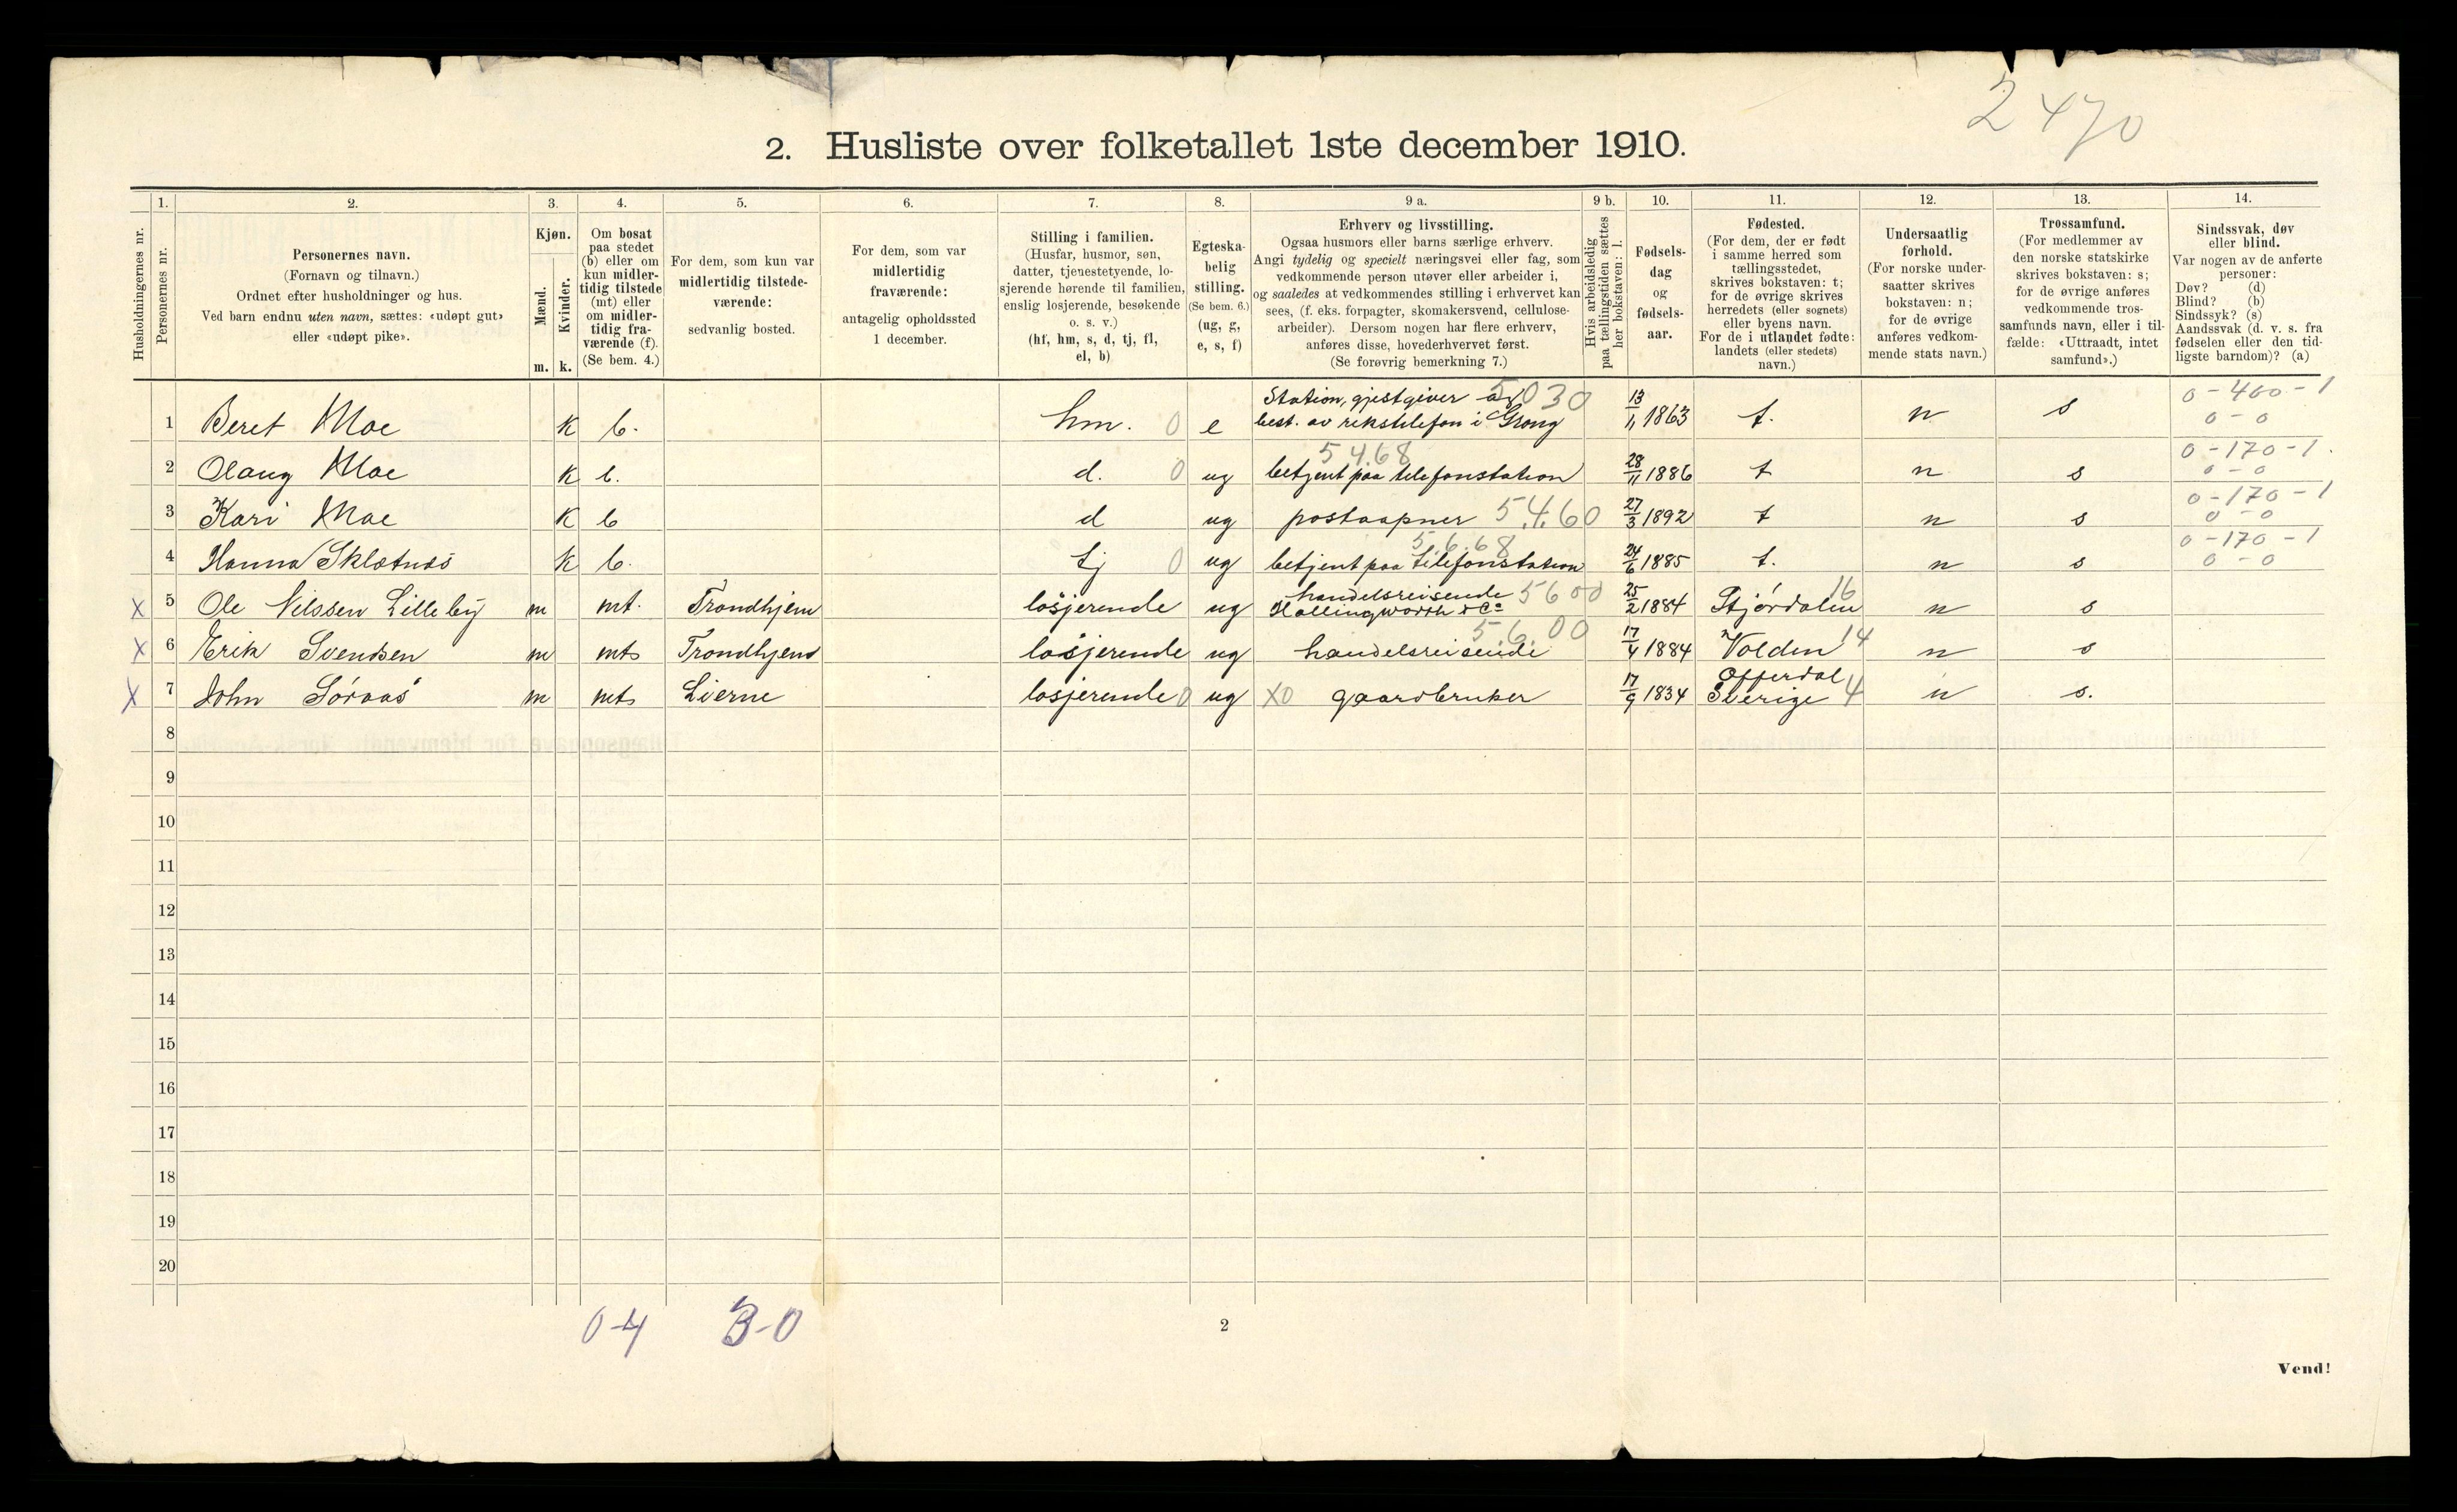 2 470
2. Husliste over folketallet 1ste december 1910.
Husholdningernes nr.
1.
Personernes nr.
2.
Personernes navn.
(Fornavn og tilnavn.)
Ordnet efter husholdninger og hus.
Ved barn endnu uten navn, sættes: «udøpt gut»
eller «udøpt pike».
3.
Kjøn.
Mænd.
Kvinder.
m. k.
4.
Om bosat
paa stedet
(b) eller om
kun midler-
tidig tilstede
(mt) eller
om midler-
tidig fra-
værende (f).
(Se bem. 4.)
5.
For dem, som kun var
midlertidig tilstede-
værende:
sedvanlig bosted.
6.
For dem, som var
midlertidig
fraværende:
antagelig opholdssted
1 december.
7.
Stilling i familien.
(Husfar, husmor, søn,
datter, tjenestetyende, lo-
sjerende hørende til familien,
enslig losjerende, besøkende
o. s. v.)
(hf, hm, s, d, tj, fl,
el, b)
8.
Egteska-
belig
stilling.
(Se bem. 6.)
(ug, g,
e, s, f)
9 a.
Erhverv og livsstilling.
Ogsaa husmors eller barns særlige erhverv.
Angi tydelig og specielt næringsvei eller fag, som
vedkommende person utøver eller arbeider i,
og saaledes at vedkommendes stilling i erhvervet kan
sees, (f. eks. forpagter, skomakersvend, cellulose-
arbeider). Dersom nogen har flere erhverv,
anføres disse, hovederhvervet først.
(Se forøvrig bemerkning 7.)
9 b.
Hvis arbeidsledig
paa tællingstiden sættes
her bokstaven: l.
10.
Fødsels-
dag
og
fødsels-
aar.
11.
Fødested.
(For dem, der er født
i samme herred som
tællingsstedet,
skrives bokstaven: t;
for de øvrige skrives
herredets (eller sognets)
eller byens navn.
For de i utlandet fødte:
landets (eller stedets)
navn.)
12.
Undersaatlig
forhold.
(For norske under-
saatter skrives
bokstaven: n;
for de øvrige
anføres vedkom-
mende stats navn.)
13.
Trossamfund.
(For medlemmer av
den norske statskirke
skrives bokstaven: s;
for de øvrige anføres
vedkommende tros-
samfunds navn, eller i til-
fælde: «Uttraadt, intet
samfund».)
14.
Sindssvak, døv
eller blind.
Var nogen av de anførte
personer:
Døv? (d)
Blind? (b)
Sindssyk? (s)
Aandssvak (d. v. s. fra
fødselen eller den tid-
ligste barndom)? (a)
Station, gjestgiver og 5030 0-400-1
1 Beret Moe K b. hm. 0 e best. av rikstelefon i Grong 13/11 1863 t. n s 0-0
54.68 0-170-1.
2 Olaug Moe K b. d. 0 ug betjent paa telefonstation 28/11 1886 t n s 0-0
0-170-1
3 Kari Moe K b d ug postaapner 5.4.60 27/3 1892 t n s 0-0
5.6.68 0-170-1
4 Hanna Skletnes K b. tj 0 ug betjent paa telefonstation 24/6 1885 t. n s 0-0
handelsreisende 5600 16
X 5 Ole Nilssen Lilleby m mt. Trondhjem losjerende ug Hollingworth & Co 25/2 1884 Stjørdalen n s
5.6.00 14
X 6 Erik Svendsen m mt Trondhjem losjerende ug handelsreisende 17/4 1884 Volden n s
Offerdal
X 7 John Søraas m mt Lierne losjerende 0 ug X0 gaardbruker 17/9 1834 Sverige 4 n s.
8
9
10
11
12
13
14
15
16
17
18
19
20
0-4 3-0
2
Vend!